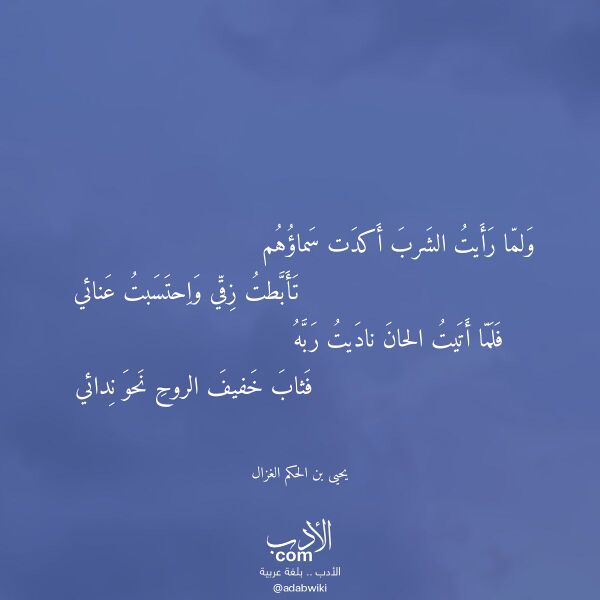 وَلمّا رَأَيتُ الشَربَ أَكدَت سَماؤُهُم
تَأَبَّطتُ زِقّي وَاِحتَسَبتُ عَنائي
فَلَمّا أَتَيتُ الحانَ نادَيتُ رَبَّهُ
فَثابَ خَفيفَ الروحِ نَحوَ نِدائي
يحيى بن الحكم الغزال
الأدب
com
الأدب .. بلغة عربية
@adabwiki